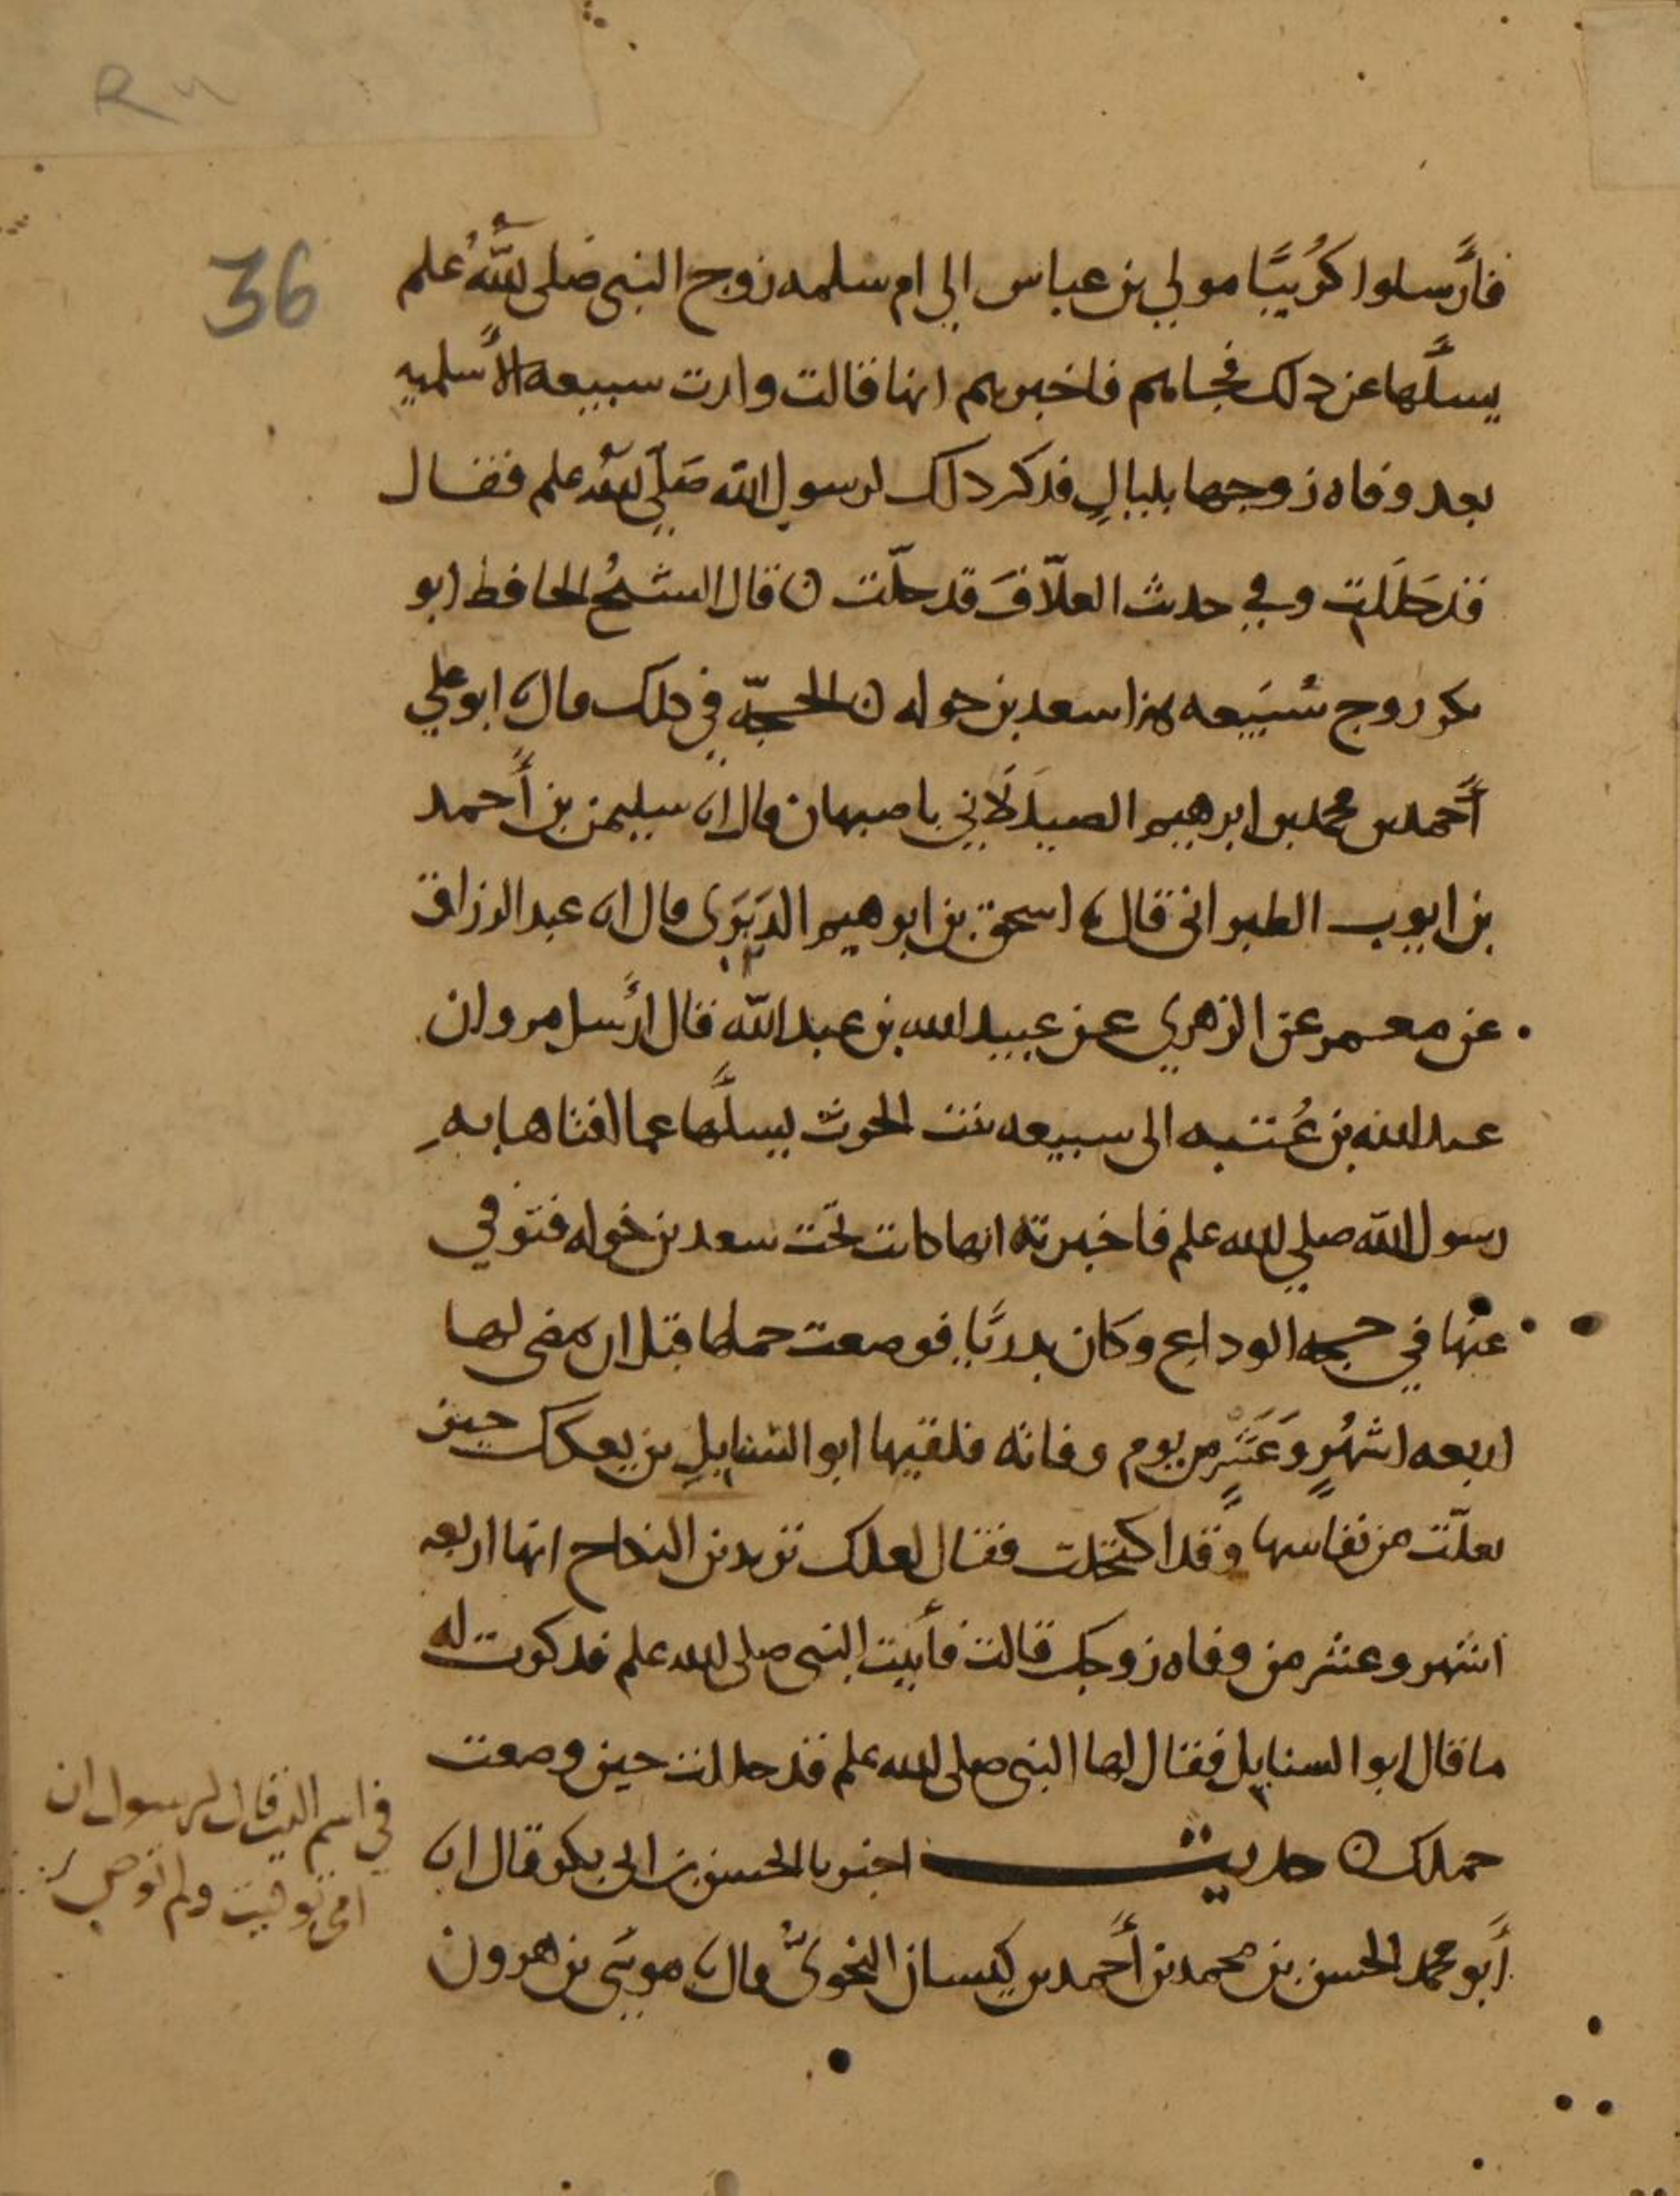 R
36
فأرسلوا كُرَيبًا مولي بن عباس الي ام سلمه زوج النبي صلى الله علم
يسلها عن دلك فجاهم فاخبرهم انها قالت ولدت سبيعه الأسلميه
بعد وفاه زوجها بليالٍ فدكر دلك لرسول الله صَلّي الله علم فقال
قد حَلَلتِ وفي حدث العلّافَ قد حلّت ن قال الشيخُ الحافط ابو
بكر زوج سُبَيعه هذا سعد بن خوله ن الحجّه في دلك مال انا ابو علي
أحمد بن محمد بن ابرهيم الصيدَلَاني باصبهان مال انا سليمن بن أحمد
بن ايوب الطبراني قال نا اسحق بن ابرهيم الدبَرَي مال انا عبد الرزاق
عن معمر عن الزهري عن عبيد الله بن عبد الله قال أرسل مروان
عبد الله بن عُتبه الى سبيعه بنت الحرث يسلها عما افتاها به
رسول الله صلي الله علم فاخبرته انها كانت تحت سعد بن خوله فتوفي
عنها في حجه الوداع وكان بدريًا فوضعت حملها قبل ان يمضى لها
اربعه اشهُرٍ وَعَشرٍ من يوم وفاته فلقيها ابو السنابلِ بن بعكك حين
تعلّت من نفاسها وقد اكتحلت فقال لعلك تريدين النكاح انها اربعه
اشهر وعشر من وفاه زوجك قالت فأتيت النبى صلى الله علم فدكرت له
ما قال ابو السنابل فقال لها النبى صلى الله علم قد حللت حين وضعت
حملك ن حديث اخبرنا الحسن بن ابى بكر قال انا
أبو محمد الحسن بن محمد بن أحمد بن كيسان النحويُّ مال نا موسَى بن هرون
في اسم الذي قال لرسول ان
امى توفيت ولم توصي